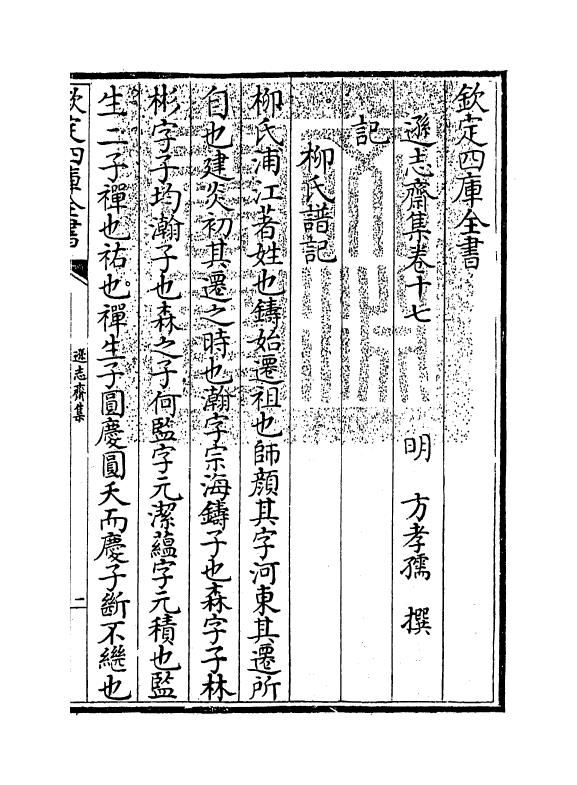 欽定四庫全書
遜志齋集卷十七　明　方孝孺　撰
記
柳氏譜記
柳氏浦江著姓也鑄始遷祖也師顔其字河東其遷所
自也建炎初其遷之時也瀚字宗海鑄子也森字子林
彬字子均瀚子也森之子何監字元潔藴字元積也監
生二子禪也祐也禪生子圓慶圓夭而慶子斷不繼也
欽定四庫全書
遜志齋集